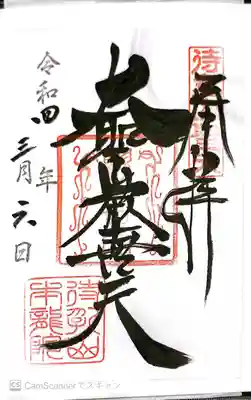 奉拝
大聖歓喜天
令和四年
三月六日
待乳山
本龍院
CS CamScannerでスキャン